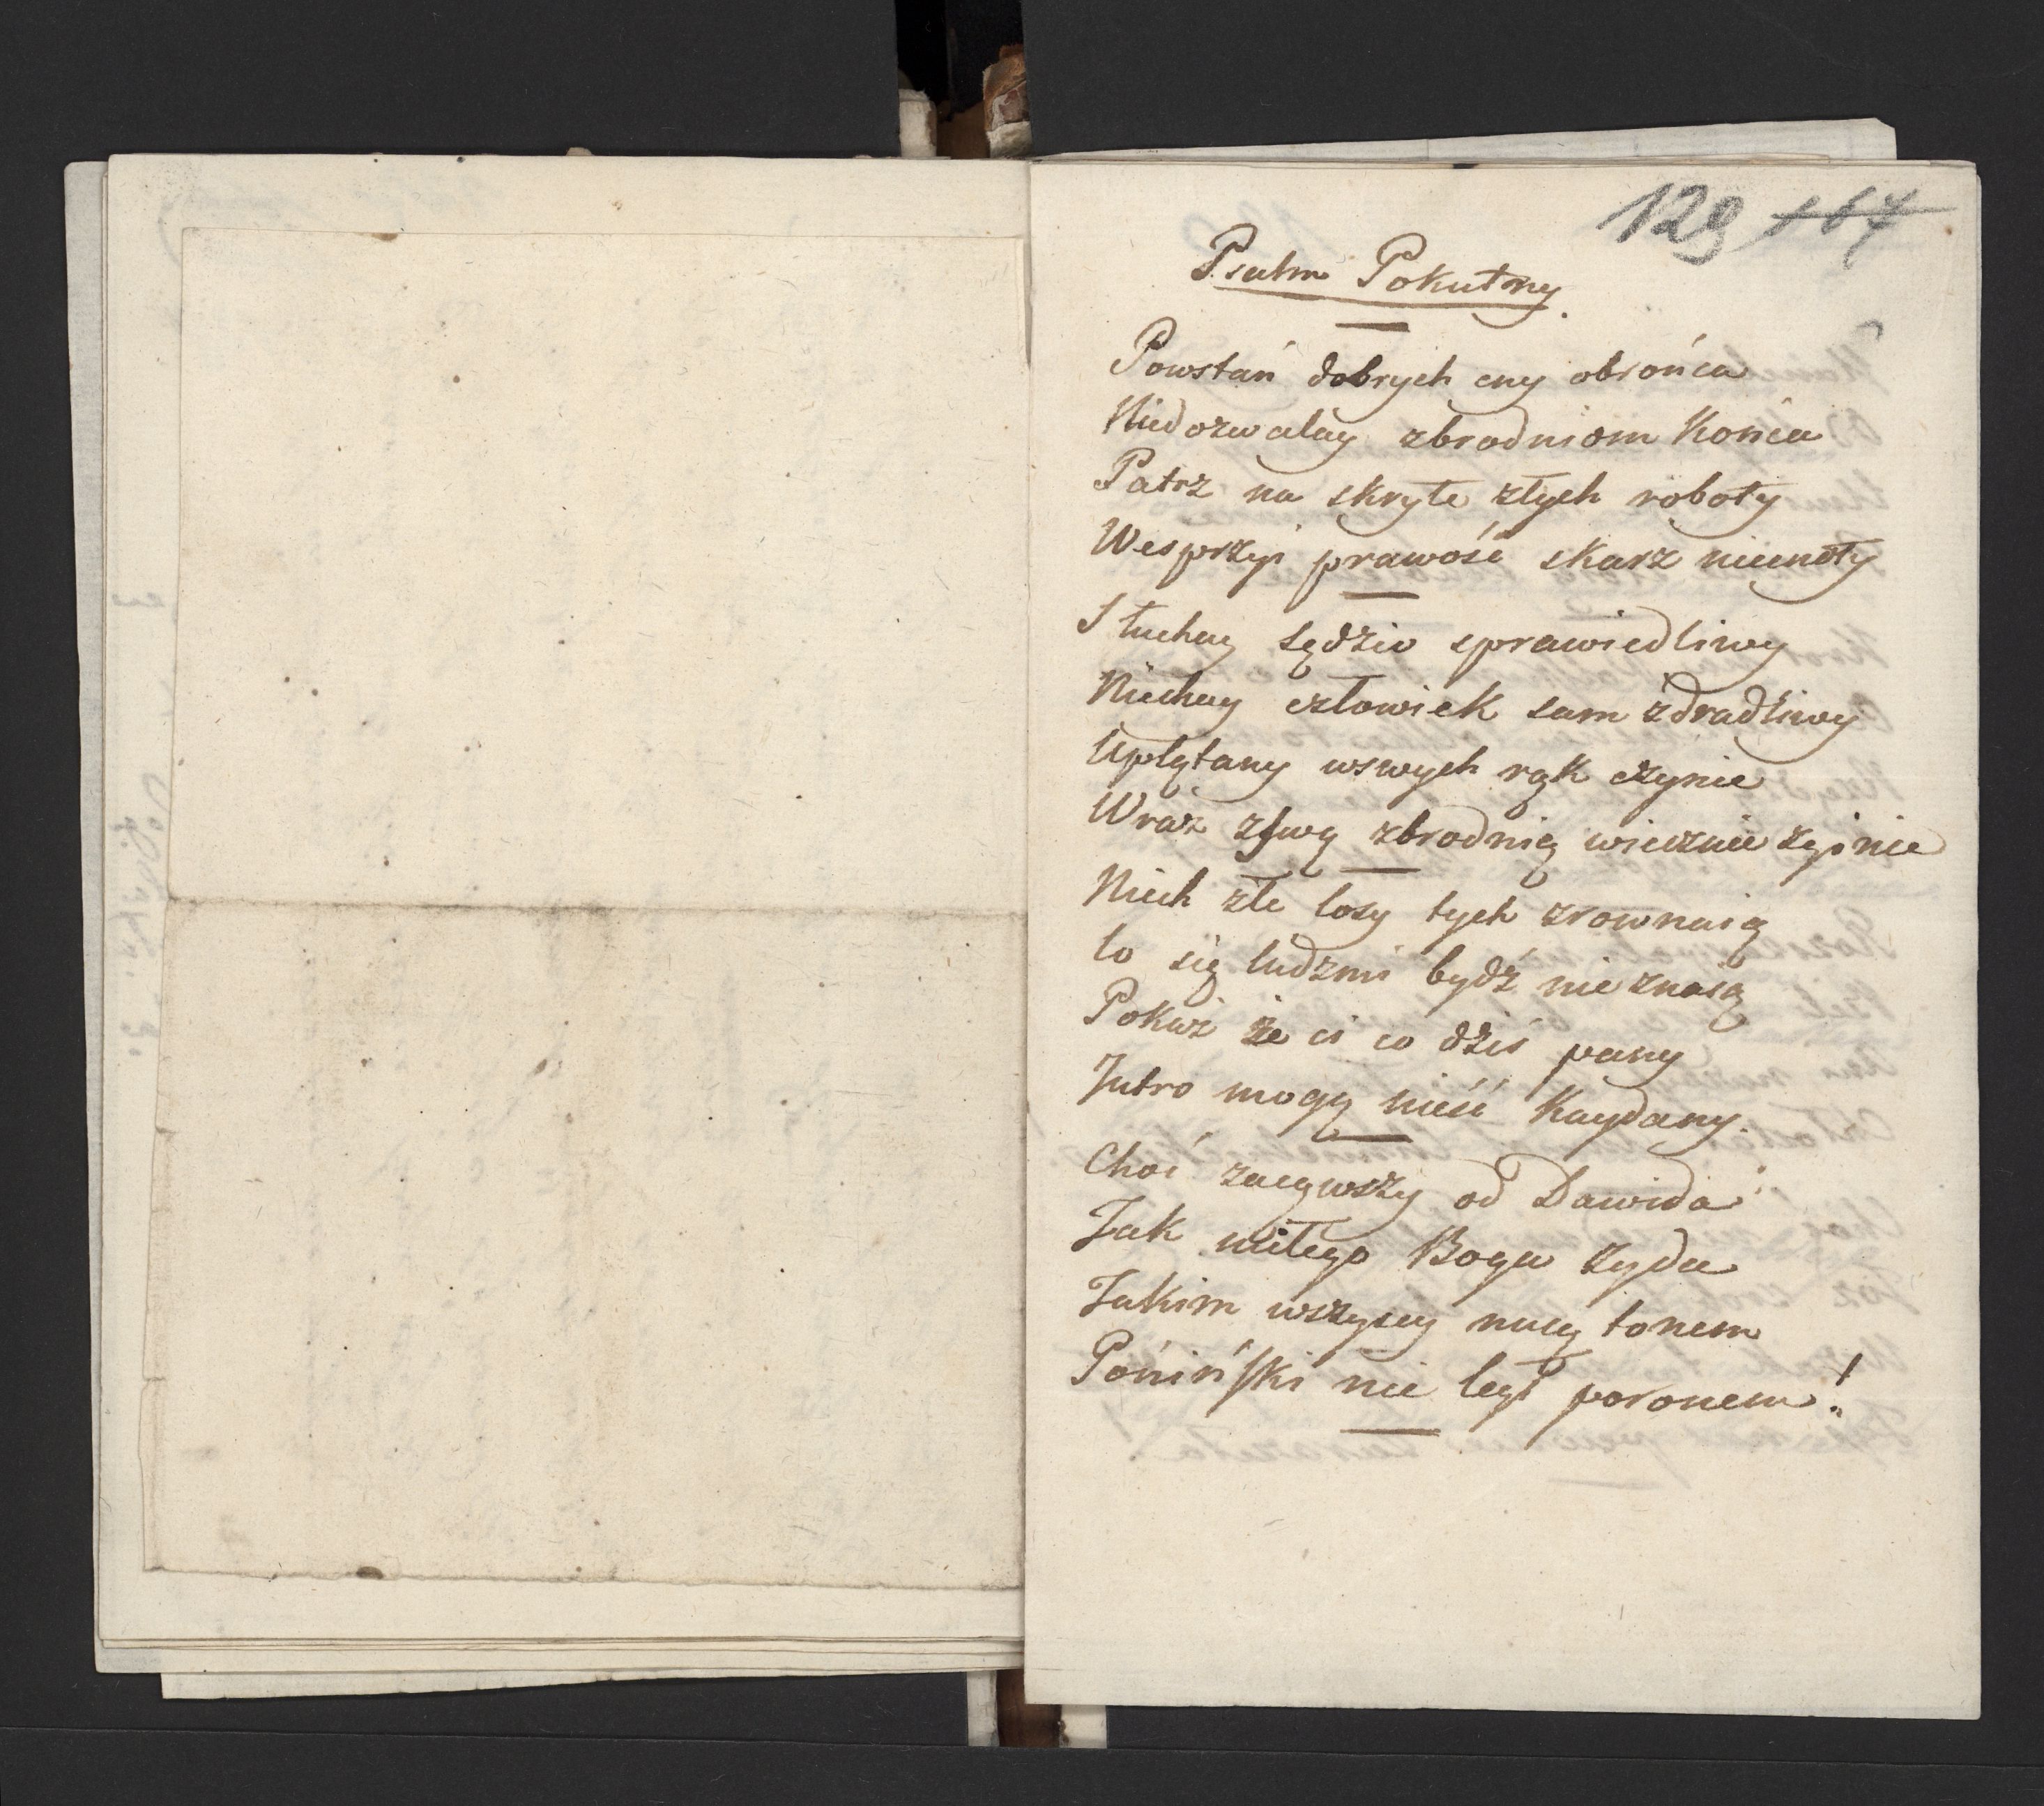 129 167
Psalm Pokutny.
Powstań dobrych cny obrońca
Niedozwalay zbrodniom Końca
Patrz na skryte złych roboty
Wesprzyi prawość skarz niecnoty
Słuchay Sędzio sprawiedliwy
Niechay człowiek sam zdradliwy
Uplątany wswych rąk czynie
Wraz zswą zbrodnią wiecznie zginie
Niech złe losy tych zrownaią
Co się ludzmi bydź nie znaią
Pokaż że ci co dziś pany
Jutro mogą nieść Kaydany.
Choć zacząwszy od Dawida
Jak miłego Bogu żyda
Jakim wszyscy nucą tonem
Poniński nie legł poronem!